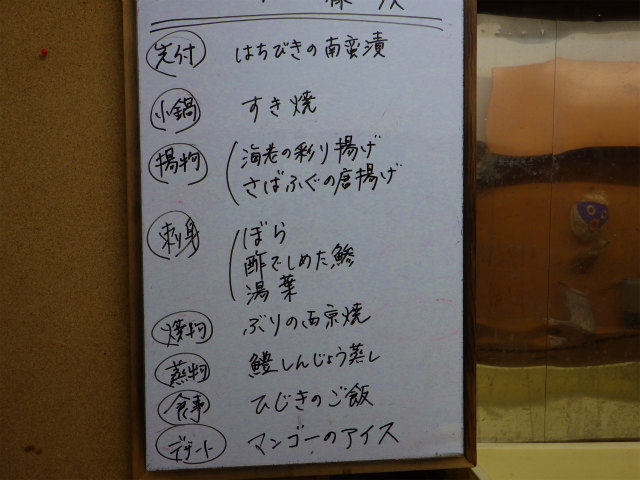 先付 はちびきの南蛮漬
小鍋 すき焼
揚物 海老の彩り揚げ
さばふぐの唐揚げ
刺身 ぼら
酢でしめた鯵
湯葉
焼物 ぶりの西京焼
蒸物 鱧しんじょう蒸し
食事 ひじきのご飯
デザート マンゴーのアイス